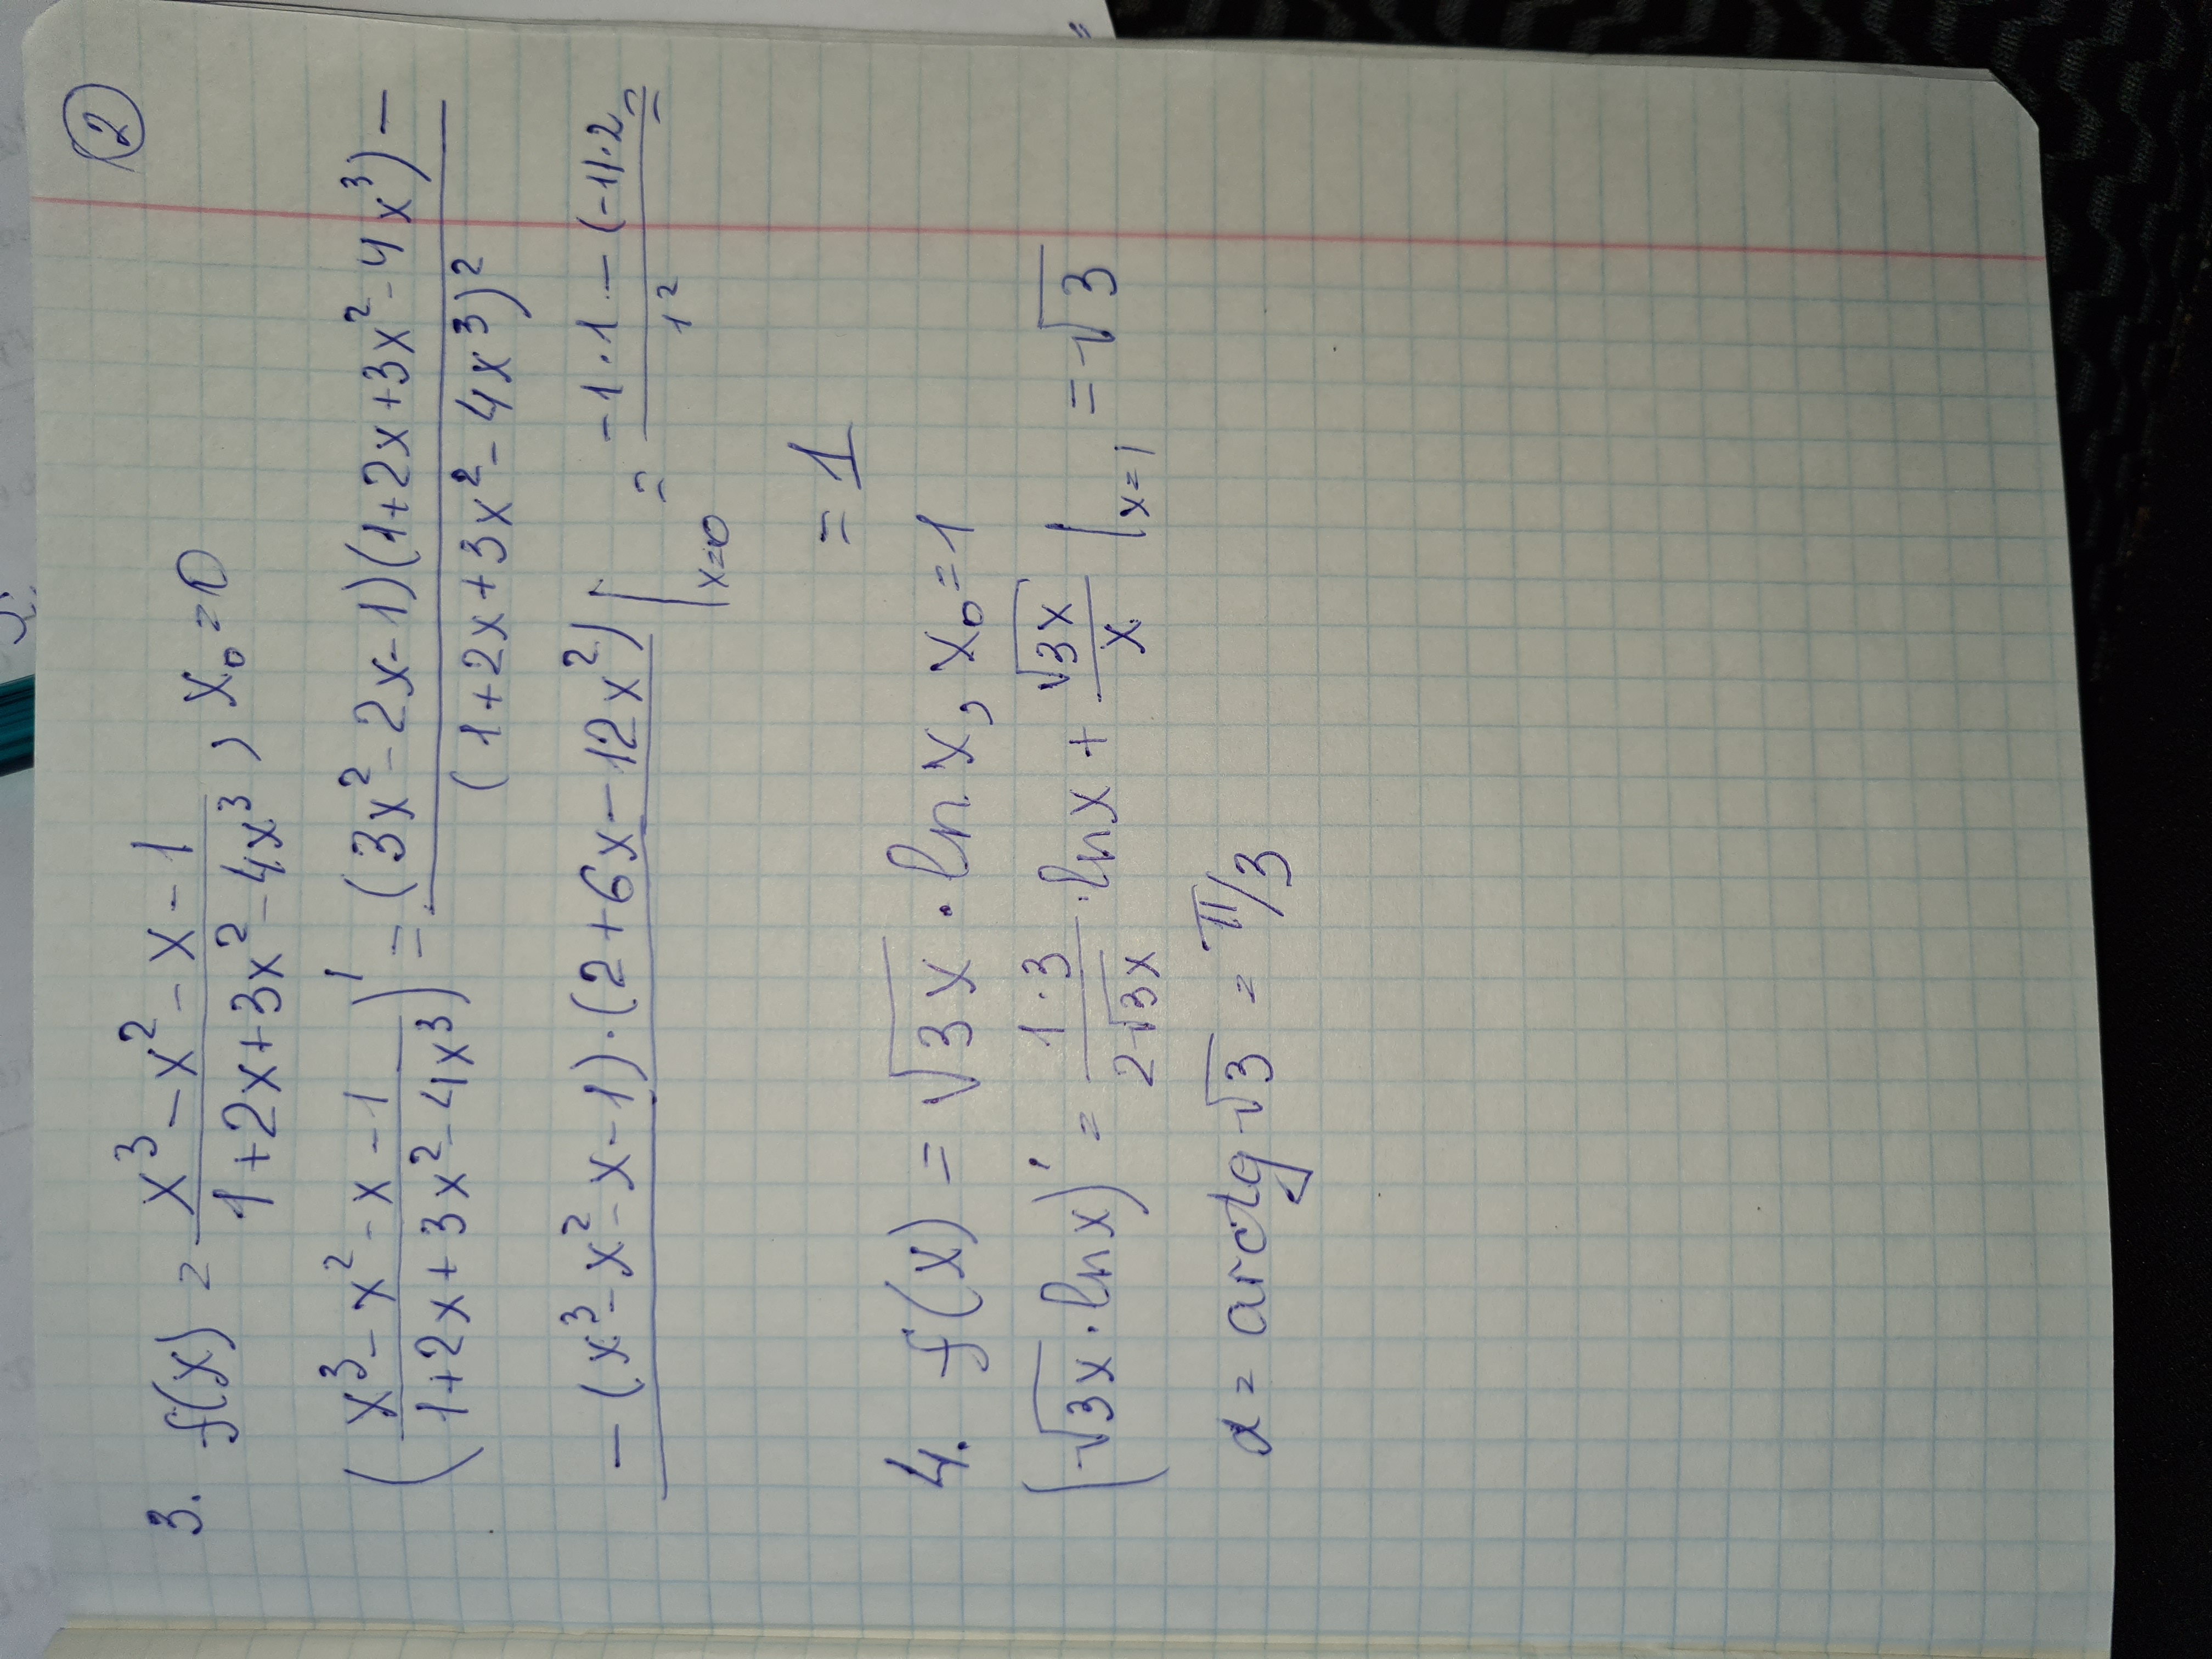 2
3. f(x) = (x³ - x² - x - 1)/(1 + 2x + 3x² - 4x³), x₀ = 0
((x³ - x² - x - 1)/(1 + 2x + 3x² - 4x³))' = ((3x² - 2x - 1)(1 + 2x + 3x² - 4x³) -)/((1 + 2x + 3x² - 4x³)²)
- (x³ - x² - x - 1)·(2 + 6x - 12x²) |x=0 = (-1·1 - (-1)·2)/1² =
= 1
4. f(x) = √3x · ln x, x₀ = 1
(√3x · ln x)' = (1·3)/(2√3x) · ln x + √3x/x |x=1 = √3
α = arctg √3 = π/3